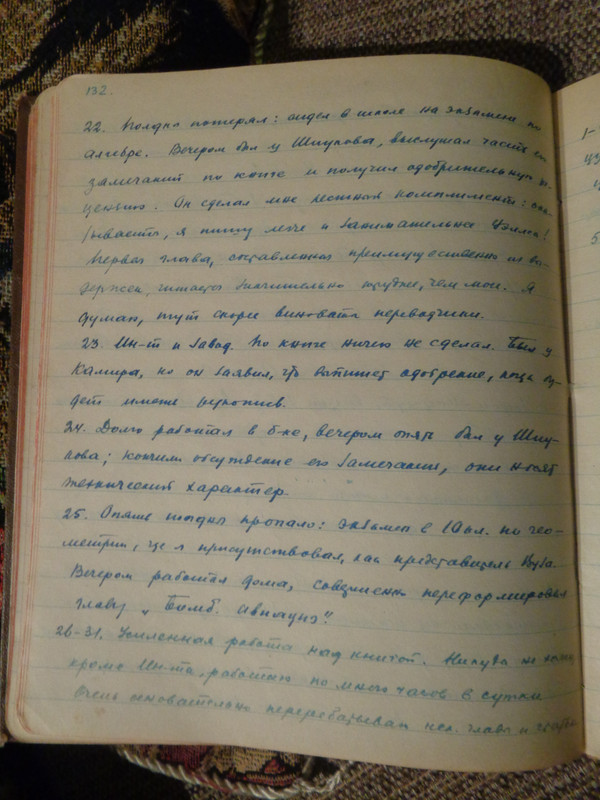 132.
22. Полдня потерял: сидел в школе на экзамене по
алгебре. Вечером был у Шиукова, выслушал часть его
замечаний по книге и получил одобрительную ре-
цензию. Он сделал мне комплименты: ока-
зывается, я пишу легче и занимательнее Уэллса!
Первая глава, составленная преимущественно из вы-
держек, читается значительно труднее, чем мои. Я
думаю, тут скорее виноваты переводчики.
23. Ин-т и завод. По книге ничего не сделал. Был у
но он заявил, что напишет одобрение, когда бу-
дет имени рукопись.
24. Долго работал в б-ке, вечером опять был у Шиу-
кова; кончили обсуждение его замечаний, они носят
технический характер.
25. Опять полдня пропало: экзамен в 10 кл. по гео-
метрии, где я присутствовал, как представитель Вуза.
Вечером работал дома, совершенно переформировал
главу „Бомб. авиация".
26-31. Усиленная работа над книгой. Никуда не хожу,
кроме Ин-та, работаю по много часов в сутки.
Очень основательно перерабатываю нек. главы и